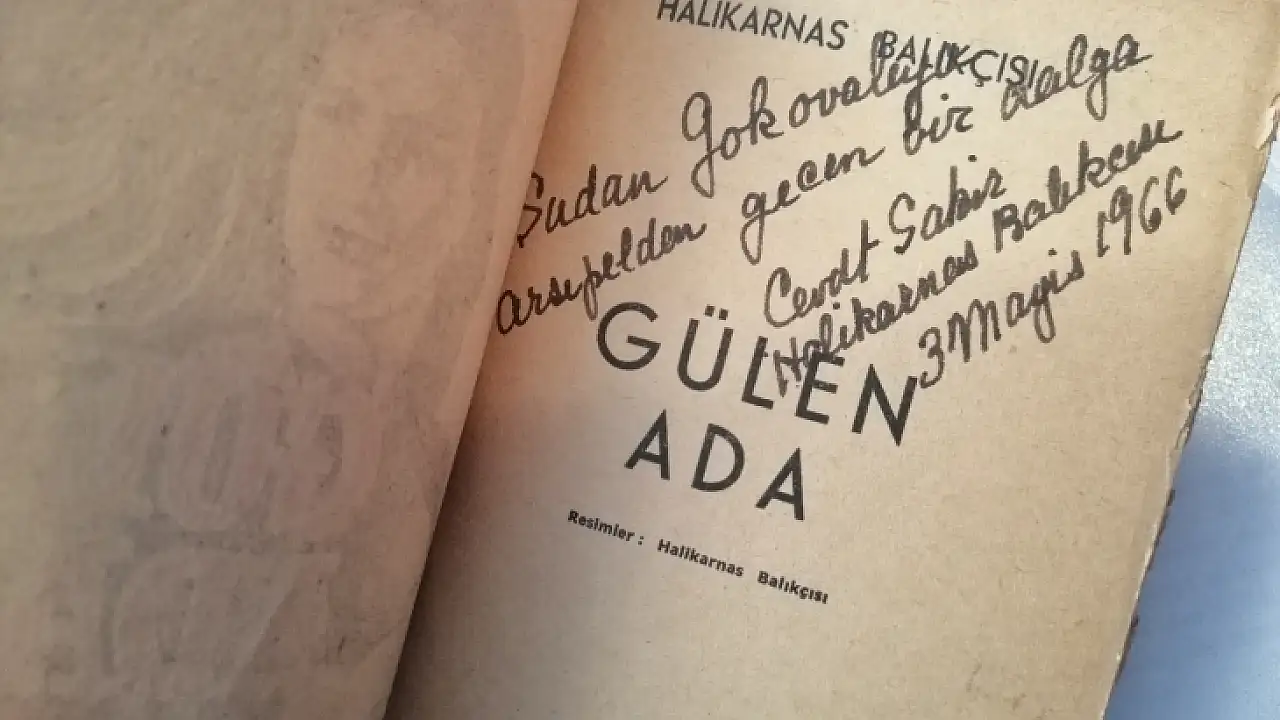 HALİKARNAS BALIKÇISI
Şadan Gokovalıya
arsıpelden geçen bir dalga
Cevdt Şakir
Halikarnas Balıkcısı
3 Mayıs 1966
GÜLEN
ADA
Resimler : Halikarnas Balıkçısı